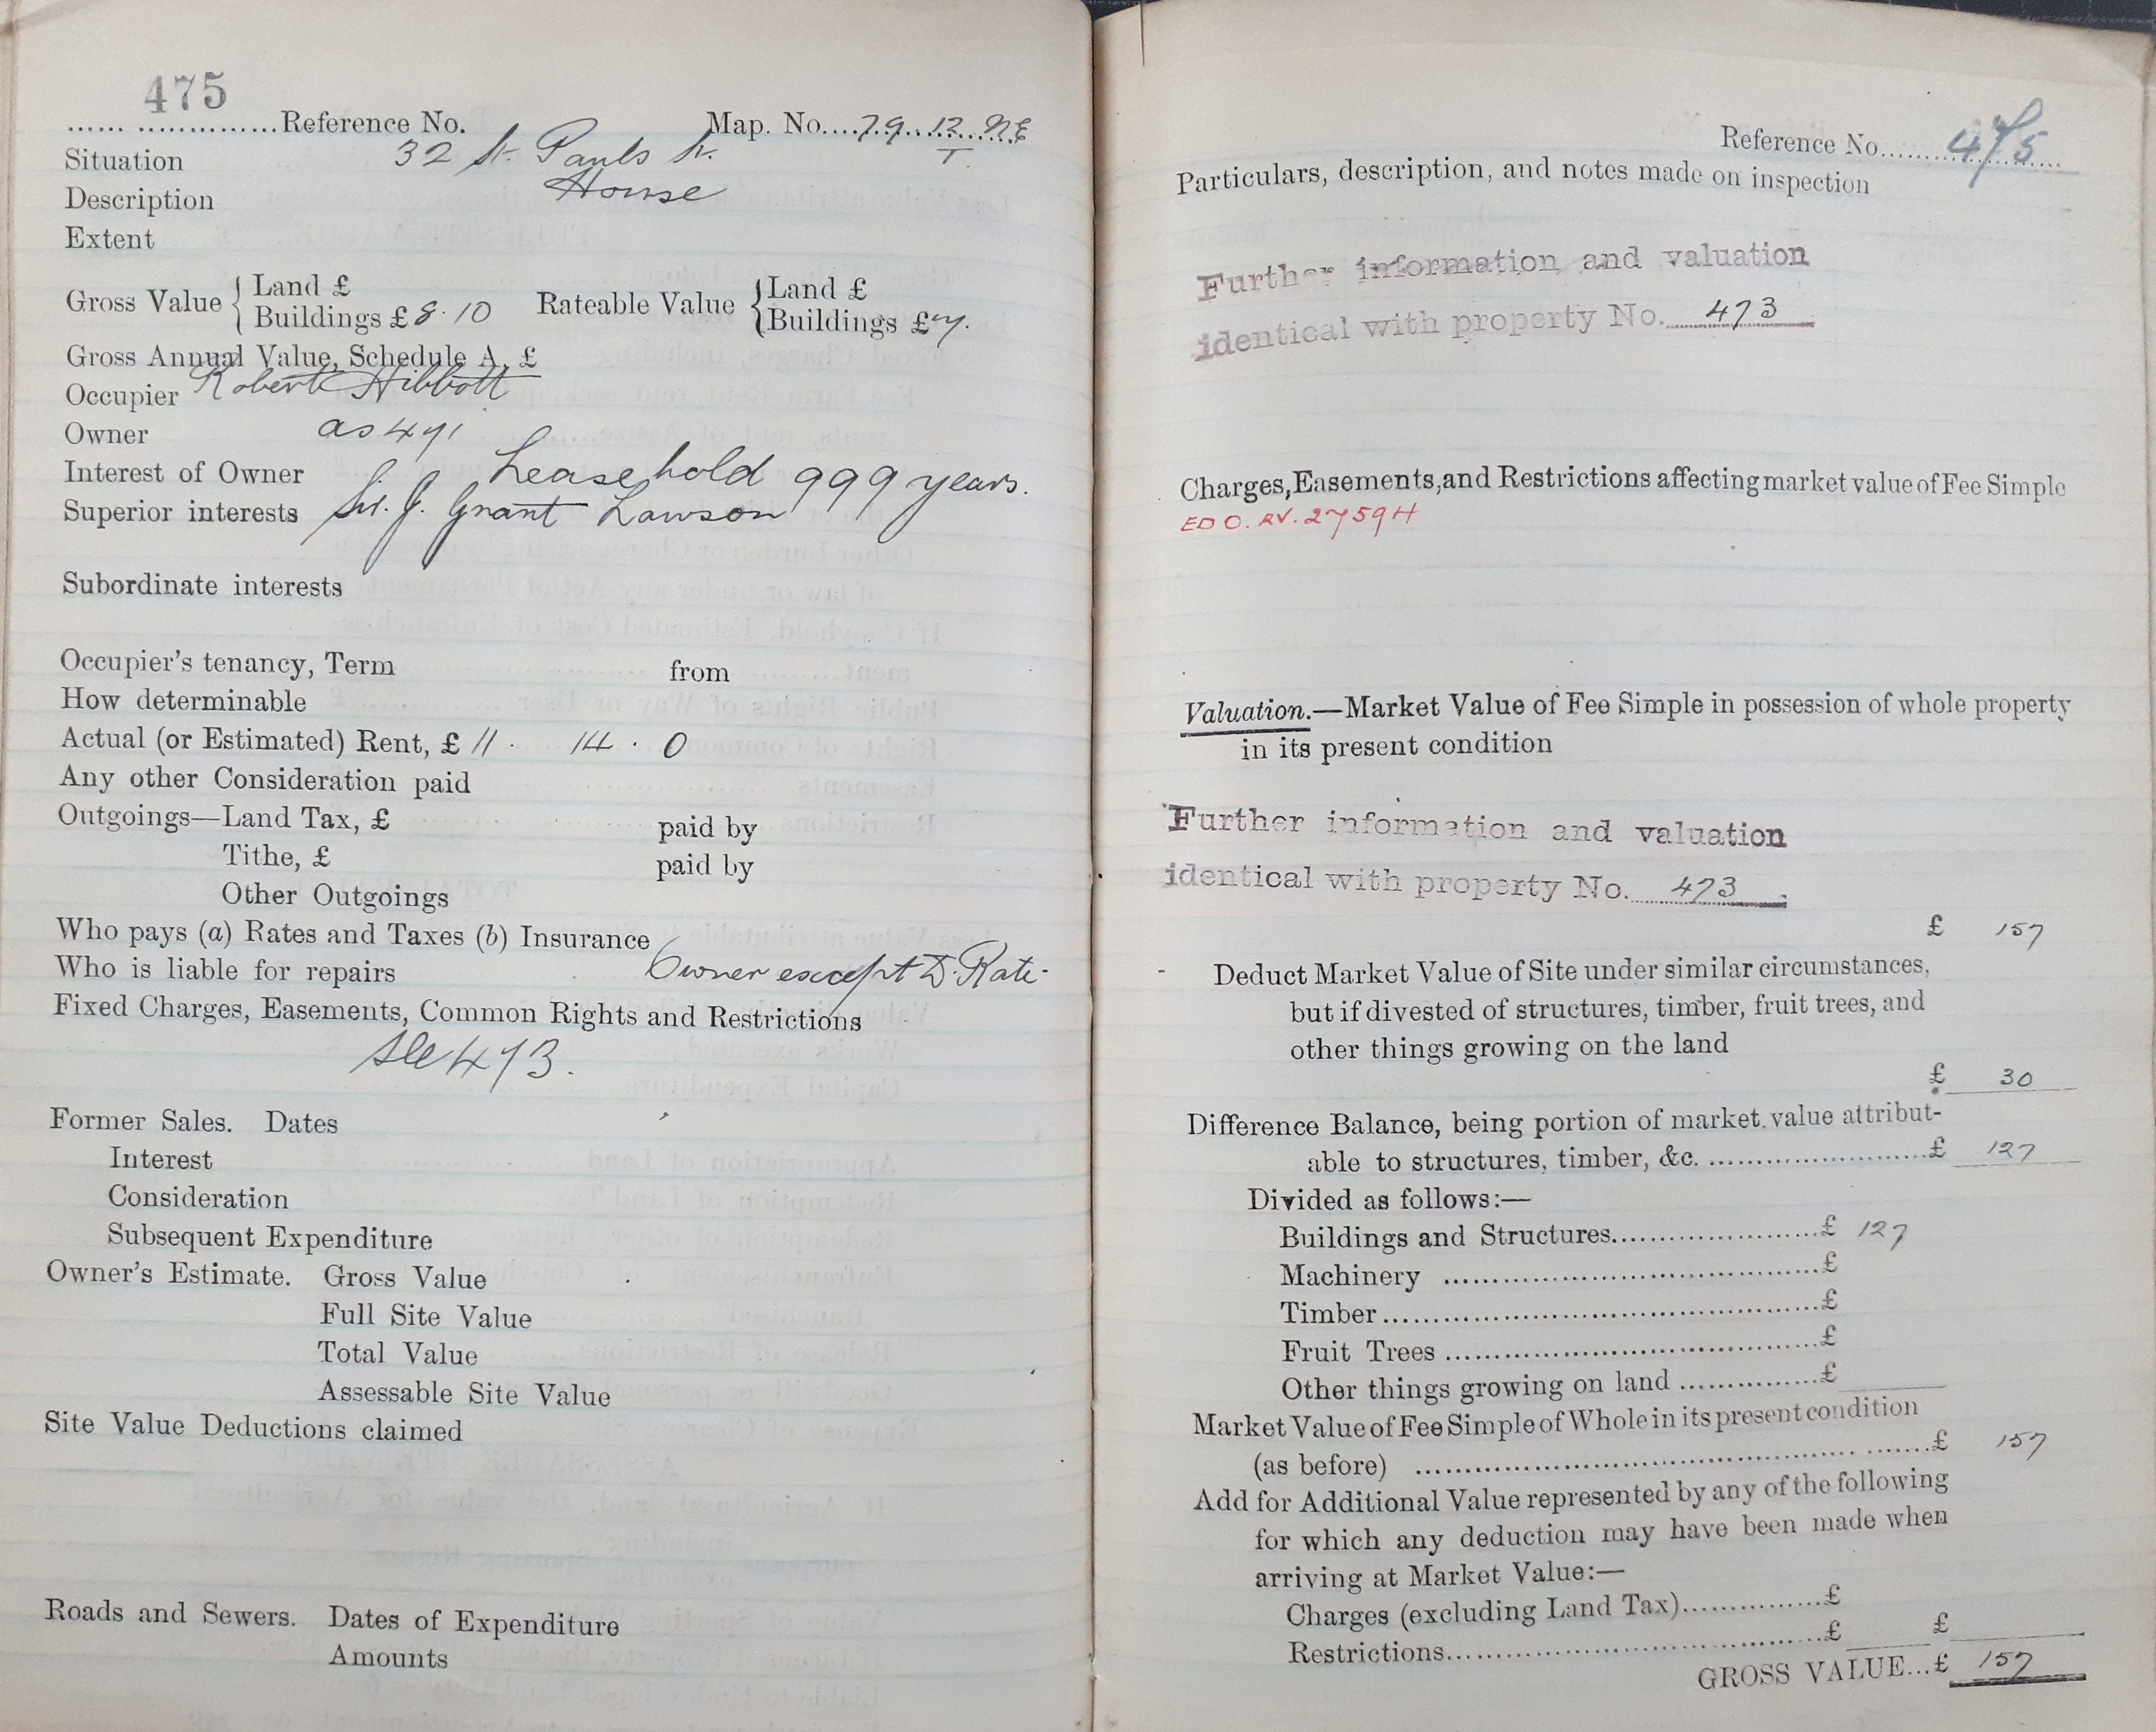 475
...... ..............Reference No. Map. No....79..12..NE
T
Situation 32 St. Pauls St.
Description House
Extent
Gross Value { Land £
Buildings £ 8.10
Rateable Value { Land £
Buildings £ 7.
Gross Annual Value, Schedule A, £
Occupier Robert Hibbott
Owner as 471
Interest of Owner Leasehold 999 years.
Superior interests Sir. J. Grant Lawson
Subordinate interests
Occupier's tenancy, Term from
How determinable
Actual (or Estimated) Rent, £ 11 . 14 . 0
Any other Consideration paid
Outgoings—Land Tax, £ paid by
Tithe, £ paid by
Other Outgoings
Who pays (a) Rates and Taxes (b) Insurance
Who is liable for repairs Owner except D. Rate
Fixed Charges, Easements, Common Rights and Restrictions
See 473.
Former Sales. Dates
Interest
Consideration
Subsequent Expenditure
Owner's Estimate. Gross Value
Full Site Value
Total Value
Assessable Site Value
Site Value Deductions claimed
Roads and Sewers. Dates of Expenditure
Amounts
Reference No. 475
Particulars, description, and notes made on inspection
Further information and valuation
identical with property No. 473
Charges, Easements, and Restrictions affecting market value of Fee Simple
ED O. RV. 2759H
Valuation.—Market Value of Fee Simple in possession of whole property
in its present condition
Further information and valuation
identical with property No. 473
£ 157
Deduct Market Value of Site under similar circumstances,
but if divested of structures, timber, fruit trees, and
other things growing on the land
£ 30
Difference Balance, being portion of market value attribut-
able to structures, timber, &c. ..........................£ 127
Divided as follows:—
Buildings and Structures.......................£ 127
Machinery ..........................................£
Timber.................................................£
Fruit Trees ..........................................£
Other things growing on land ...............£
Market Value of Fee Simple of Whole in its present condition
(as before) ..........................................................£ 157
Add for Additional Value represented by any of the following
for which any deduction may have been made when
arriving at Market Value:—
Charges (excluding Land Tax)...............£
Restrictions..........................................£ £
GROSS VALUE...£ 157